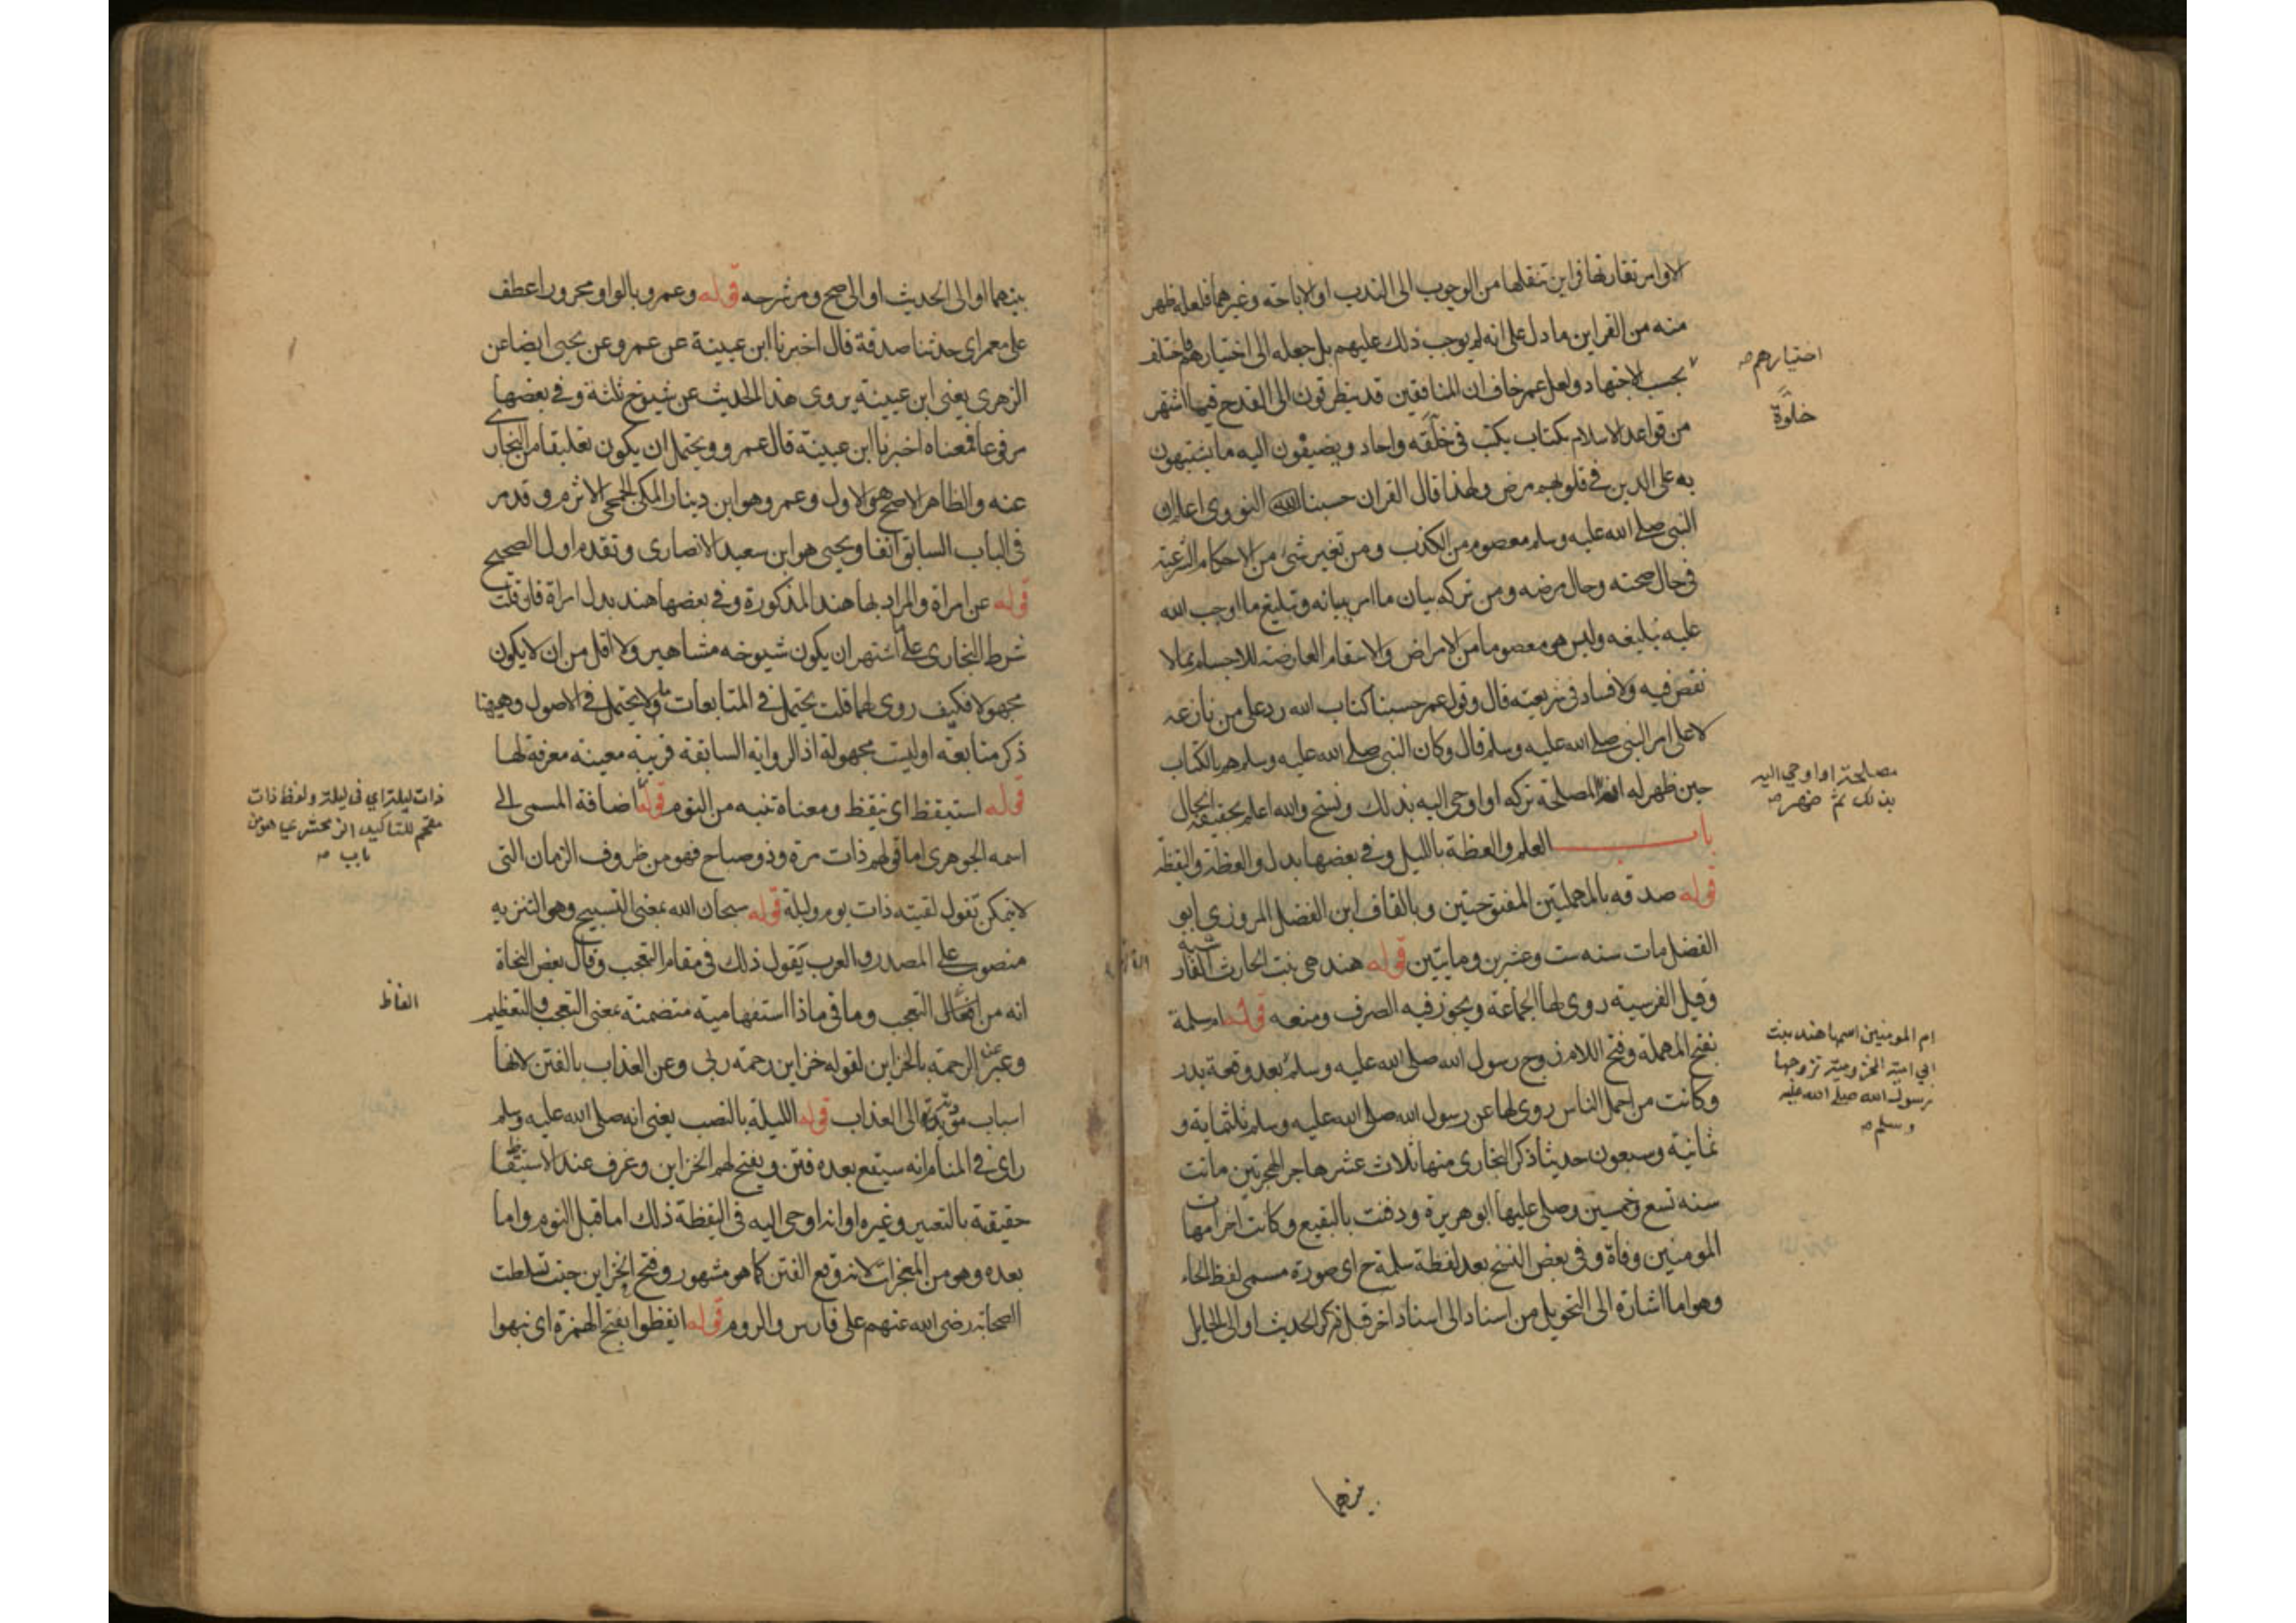 الاوامر تقارنها قراين تنقلها من الوجوب الى الندب او الاباحة وغيرهما فلعله ظهر
منه من القراين ما دل على انه لم يوجب ذلك عليهم بل جعله الى اختيارهم فاختلف
بحسب الاجتهاد ولعل عمر خاف ان المنافقين قد يتطرقون الى القدح فيما اشتهر
من قواعد الاسلام بكتاب يكتب في خلقه واحاد ويضيفون اليه ما يشبهون
به على الذين في قلوبهم مرض ولهذا قال القران حسبنا الله النووي اعلم ان
النبي صلى الله عليه وسلم معصوم من الكذب ومن تغير شئ من الاحكام الشرعية
في حال صحته وحال مرضه ومن تركه بيان ما امر ببيانه وتبليغ ما اوجب الله
عليه تبليغه وليس هو معصوما من الامراض والاسقام العارضة للاجسام مما لا
نقص فيه ولا فساد في شريعته قال وقول عمر حسبنا كتاب الله رد على من نازعه
لا على امر النبي صلى الله عليه وسلم قال وكان النبي صلى الله عليه وسلم هم بالكتاب
حين ظهر له انه المصلحة تركه او اوحي اليه بذلك ونسخ والله اعلم بحقيقة الحال
باب العلم والعظة بالليل وفي بعضها بدل والعظة واليقظة
قوله صدقه بالمهملتين المفتوحتين وبالقاف ابن الفضل المروزي ابو
الفضل مات سنه ست وعشرين ومايتين قوله هند هي بنت الحارث الفار سية
وقيل القرسية روى لها الجماعة ويجوز فيه الصرف ومنعه قوله ام سلمة
بفتح المهملة وفتح اللام زوج رسول الله صلى الله عليه وسلم بعد وقعة بدر
وكانت من اجمل الناس روي لها عن رسول الله صلى الله عليه وسلم ثلثماية و
ثمانية وسبعون حديثا ذكر البخاري منها ثلاث عشر هاجر الهجرتين ماتت
سنه تسع وخمسين وصلى عليها ابو هريرة ودفنت بالبقيع وكانت اخر امهات
المومنين وفاة وفي بعض النسخ بعد لفظة سلمة ح اى صورة مسمى لفظ الحاء
وهو اما اشارة الى التحويل من اسناد الى اسناد اخر قبل ذكر الحديث او الى الحايل
بينهما
اختيارهم صح
خلوة
مصلحة او اوحي اليه
بذلك ثم ظهر صح
ام المومنين اسمها هند بنت
ابي امية المخزومية تزوجها
رسول الله صلى الله عليه
وسلم صح
بينهما او الى الحديث او الى صح ومر شرحه قوله وعمرو بالواو مجرورا عطف
على معمر اى حدثنا صدقة قال اخبرنا ابن عيينة عن عمرو وعن يحيى ايضا عن
الزهري يعني ابن عيينة يروي هذا الحديث عن شيوخ ثلثة وفي بعضها
مرفوعا فمعناه اخبرنا ابن عيينة قال عمرو ويحتمل ان يكون تعليقا من البخاري
عنه والظاهر الاصح هو الاول وعمرو هو ابن دينار المكي الجمحي الاثرم وقد مر
في الباب السابق آنفا ويحيى هو ابن سعيد الانصارى وتقدم اول الصحيح
قوله عن امراة والمراد بها هند المذكورة وفي بعضها هند بدل امراة فان قلت
شرط البخارى على اشتهر ان يكون شيوخه مشاهير ولا اقل من ان لا يكون
مجهولا فكيف روى لها قلت يحتمل في المتابعات ما لا يحتمل في الاصول وههنا
ذكر متابعه او ليست مجهولة اذ الرواية السابقة قرينة معينة معرفة لها
قوله استيقظ اى تيقظ ومعناه تنبه من النوم قوله اضافة المسمى الى
اسمه الجوهرى اما قولهم ذات مرة وذو صباح فهو من ظروف الزمان التى
لا تتمكن تقول لقيته ذات يوم وليلة قوله سبحان الله بمعنى التسبيح وهو التنزيه
منصوب على المصدر والعرب يقول ذلك في مقام التعجب وقال بعض النحاة
انه من التعجب وما في ماذا استفهامية متضمنة بمعنى التعجب والتعظيم
وعبر عن الرحمة بالخزاين لقوله خزاين رحمة ربي وعن العذاب بالفتن لانها
اسباب مؤدية الى العذاب قوله الليلة بالنصب يعني انه صلى الله عليه وسلم
راى في المنام انه سيقع بعده فتن ويفتح لهم الخزاين وعرف عند الاستيقاظ
حقيقة بالتعبير وغيره او انه اوحي اليه في اليقظة ذلك اما قبل النوم واما
بعده وهو من المعجزات لانه وقع الفتن كما هو مشهور وفتح الخزاين حيث تسلطت
الصحابة رضى الله عنهم على فارس والروم قوله ايقظوا بفتح الهمزة اى نبهوا
ذات ليلة اي في ليلة ولفظ ذات
مقحم للتاكيد الزمخشري هو من
باب صح
الفاظ